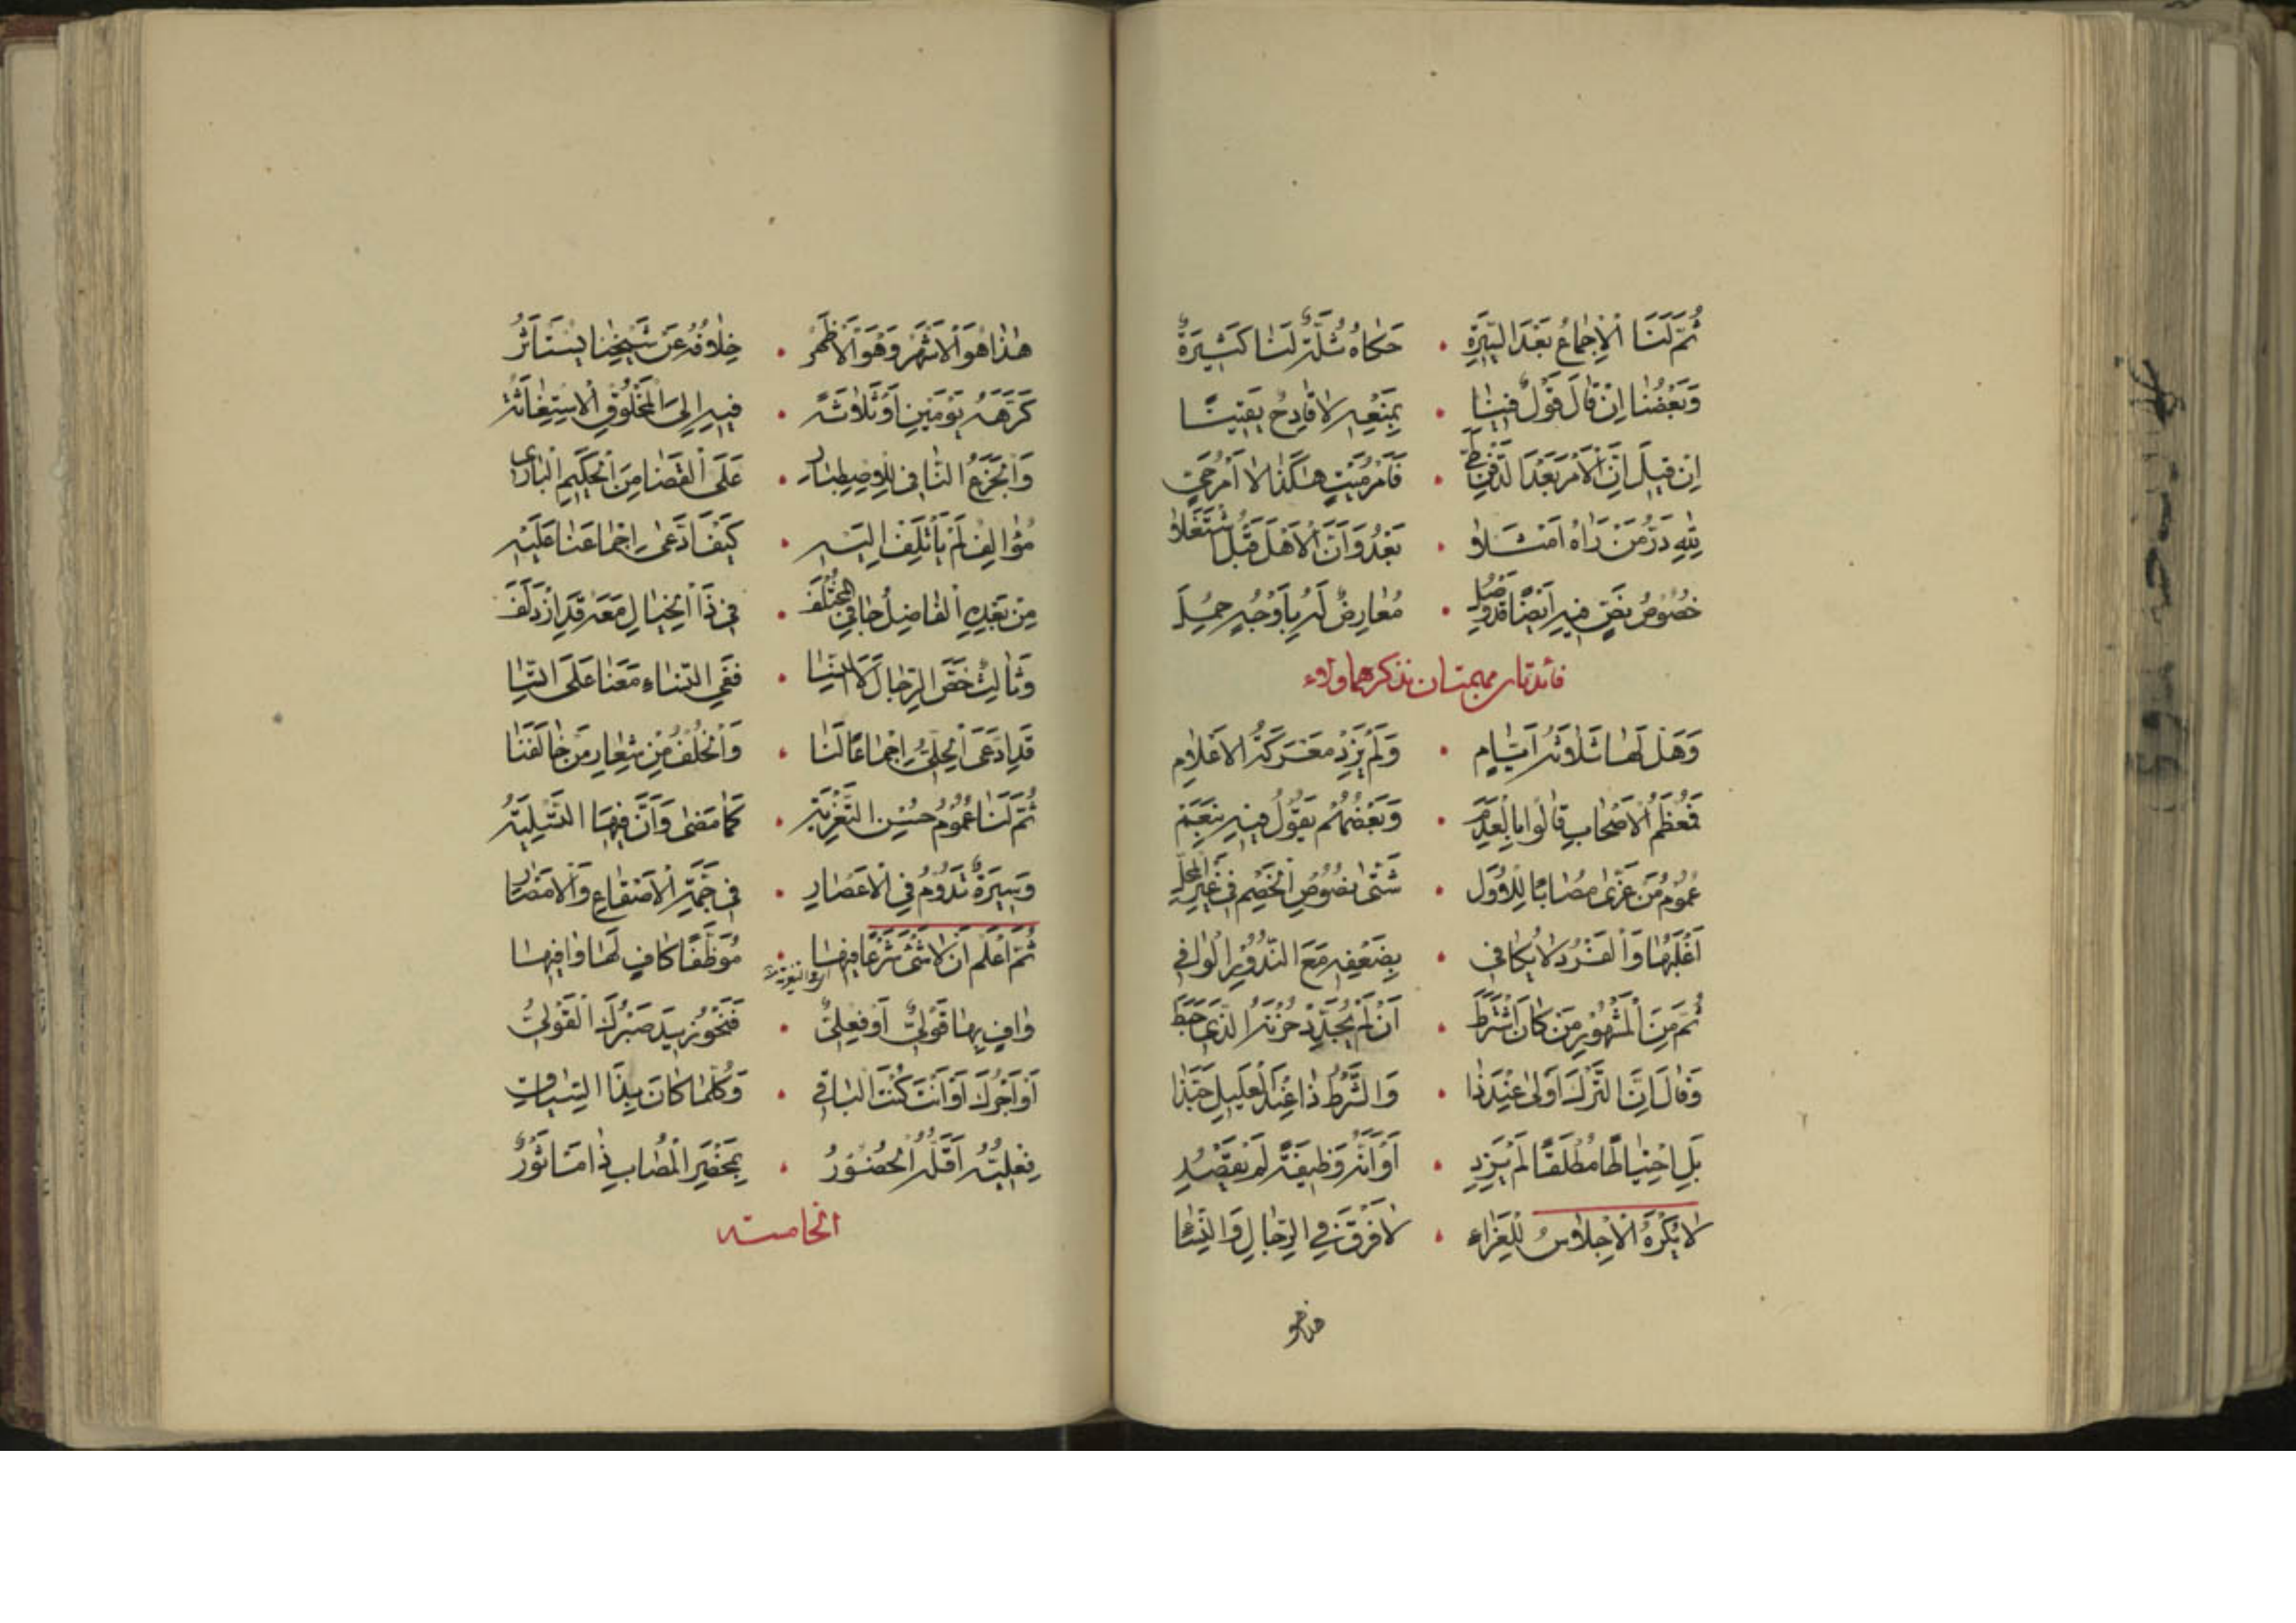 ثُمَّ لَنَا الْاِجْمَاعُ بَعْدَ السِّيَرَةِ . حَكَاهُ ثُلَّةٌ لَنَا كَثِيرَةٌ
وَبَعْضُنَا اِنْ قَالَ قَوْلٌ فِينَا . بِمَنْعِهِ لَا قَادِحٌ يَقِينًا
اِنْ قِيلَ اِنَّ الْاَمْرَ بَعْدَ الدَّفْنِ . فَاَمْرُ مَيْتٍ هٰكَذَا لَا اَمْرُ حَيٍّ
لِلّٰهِ دَرُّ مَنْ رَاٰهُ اَمْثَلَا . بَعْدُ وَاَنَّ الْاَهْلَ قَبْلُ شُتَغَلَا
خُصُوصُ نَصٍّ فِيهِ اَيْضًا قَدْ وُصِلَ . مُعَارِضٌ لَهُ بِاَوْجُهٍ حُمِلَ
فائدتان مهمتان نذكرهما ولاء
وَهَلْ لَهَا ثَلَاثَةُ اَيَّامٍ . وَلَمْ يَزِدْ مَعْرَكَةُ الْاَعْلَامِ
فَمُعْظَمُ الْاَصْحَابِ قَالُوا بِالْعَدَمِ . وَبَعْضُهُمْ يَقُولُ فِيهِ بِنَعَمْ
عُمُومُ مَنْ عَزَّى مُصَابًا لِلْاَوَّلِ . شَتَّى نُصُوصِ الْخَصْمِ فِي غَيْرِ الْمَحَلِّ
اَغْلَبُهَا وَالْفَرْدُ لَا يُكَافِي . بِضَعْفِهِ مَعَ النُّدُورِ الْوَافِي
ثُمَّ مِنَ الْمَشْهُورِ مَنْ كَانَ اشْتَرَطَ . اَنْ لَمْ يُجَدِّدْ حُزْنَهُ الَّذِي حَبَطَ
وَقَالَ اِنَّ التَّرْكَ اَوْلٰى عِنْدَ ذَا . وَالشَّرْطُ ذَا عِنْدَ الْعَلِيلِ حَبَّذَا
بَلِ احْتِيَاطًا مُطْلَقًا لَمْ يَزِدِ . اَوْ اَنَّهُ وَظِيفَةً لَمْ يَقْصُدِ
لَا يُكْرَهُ الْاِجْلَاسُ لِلْعَزَاءِ . لَا فَرْقَ فِي الرِّجَالِ وَالنِّسَاءِ
هذا هو
هٰذَا هُوَ الْاَشْهَرُ وَهُوَ الْاَظْهَرُ . خِلَافُهُ عَنْ شَيْخِنَا يُسْتَأْثَرُ
كَرَّهَهُ يَوْمَيْنِ اَوْ ثَلَاثَةً . فِيهِ اِلَى الْمَخْلُوقِ الْاِسْتِغَاثَةُ
وَالْجَزَعُ النَّافِي لِلِاصْطِبَارِ . عَلَى الْقَضَا مِنَ الْحَكِيمِ الْبَارِي
مُؤَالِفٌ لَمْ يَأْتَلِفْ اِلَيْهِ . كَيْفَ ادَّعٰى اِجْمَاعَنَا عَلَيْهِ
مِنْ بَعْدِهِ الْفَاضِلُ جَا فِي الْمُخْتَلَفِ . فِي ذَا الْخِيَالِ مَعَهُ قَدِ ازْدَلَفَ
وَثَالِثٌ خَصَّ الرِّجَالَ لَا النِّسَا . فَفِي النِّسَاءِ مَعَنَا عَلَى
قَدِ ادَّعَى الْحِلِّيُّ اِجْمَاعًا لَنَا . وَالْخُلْفُ مِنْ شِعَارِ مَنْ خَالَفَنَا
ثُمَّ لَنَا عُمُومُ حُسْنِ التَّعْزِيَةِ . كَمَا مَضٰى وَاَنَّ فِيهَا التَّسْلِيَةُ
وَسِيرَةٌ تَدُومُ فِي الْاَعْصَارِ . فِي جُمْلَةِ الْاَصْقَاعِ وَالْاَمْصَارِ
ثُمَّ اعْلَمْ اَنْ لَا شَىْءَ شَرْعًا فِيهَا . مُوَظَّفًا كَافٍ لَهَا وَافِيهَا
وَافٍ بِهَا قَوْلِيٌّ اَوْ فِعْلِيٌّ . فَنَحْوُ زِيدَ صَبْرُكَ الْقَوْلِيُّ
اَوْ اَجْرُكَ اَوْ اَنْتَ كُنْتَ الْبَاقِي . وَكُلَّمَا كَانَ بِذَا السِّيَاقِ
فِعْلِيَّتُهُ اَقَلُّهُ الْحُضُورُ . بِمَحْضَرِ الْمُصَابِ ذَا مَأْثُورٌ
الخامسة